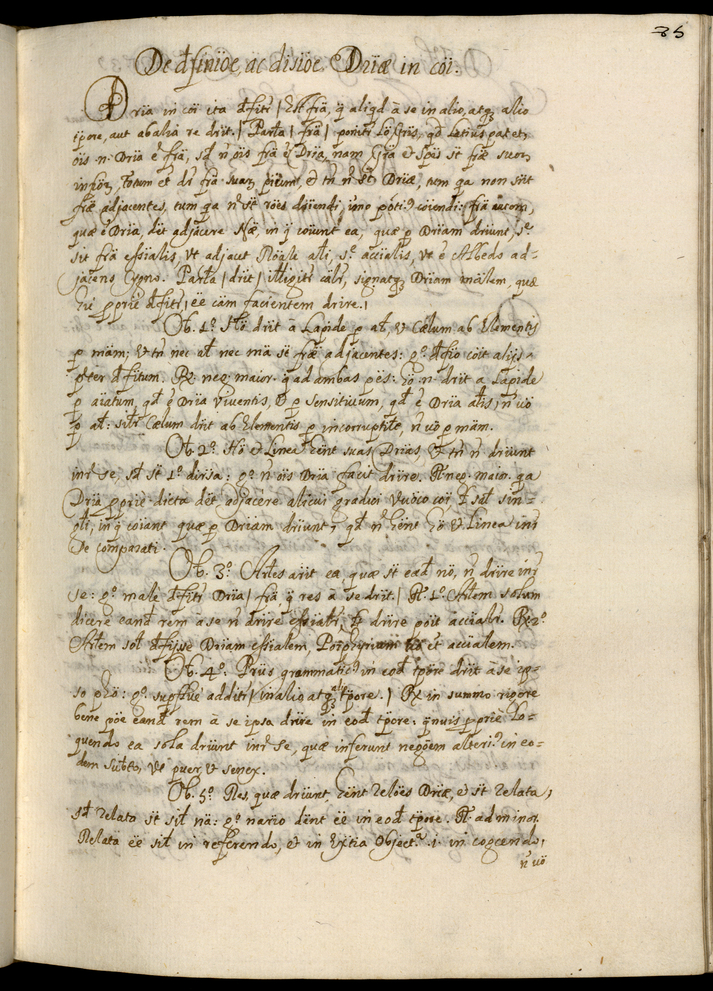 35
De dfinioe, ac disioe Driæ in coi.
Dria in coi ita dfitr | Est fra, q aliqd a se in alio, atq alio
tpore, aut ab alia re drit. | Parta | fra | ponitr lo Gris, qd latius patet,
ois n. Dria e fra, sd n ois fra e Dria, nam Gra et Spes st fræ suor
infior, Totum et dr fra suar ptium, et tn n st Driæ, tum qa non snt
fræ adjacentes, tum qa n st roes driendi, imo poti9 coiendi: fra autem,
quæ e Dria, det adjacere Næ, in q coiunt ea, quæ p Driam driunt, se
sit fra essialis, vt adjacet Roale ali, se accialis, vt e Albedo ad-
jacens Cygno. Parta | drit | itlligitr calr, signatq Driam malem, quæ
hic pprie dfitr, ee cam facientem drire. |
Ob. 1o. Ho drit a Lapide p al, et Cælum ab Elementis
p mam; et tn nec al nec ma st fræ adjacentes: go dfio coit alijs
pter dfitum. Rx neg. maior. qad ambas ptes: Ho n. drit a Lapide
p aiatum, qd e Dria viventis, et p sensitivum, qd e Dria alis, n vo
p al: siltr Cælum drit ab Elementis p incorruptile, n vo p mam.
Ob. 2o. Ho et Linea hent suas Drias, et tn n driunt
intr se, sd st 1o dirsa: go n ois Dria facit drire. R neg. maior. qa
Dria pprie dicta det adjacere alicui gradui Univoco coi et sil sin-
gli, in q coiant quæ p Driam driunt, qd n hent Ho et Linea intr
se comparati.
Ob. 3o. Artes arit ea quæ st ead no, n drire intr
se: go male dfitr Dria | fra q res a se drit | R 1o. Artem solum
dicere eand rem a se n drire essialr, et drire poit accialr. Rx 2o
Artem sol dfijsse Driam essialem, Porphyrium et accialem.
Ob. 4o. Prius grammatic9 in eod tpore drit a se ip-
so p Ho: go supflue additr | in alio atq alio tpore. | Rx in summo rigore
bene poe eand rem a se ipsa drire in eod tpore: qnuis pprie lo-
quendo ea sola driunt intr se, quæ inferunt negoem alteri9 in eo-
dem subto, vt puer, et senex.
Ob. 5o. Res, quæ driunt, hent reloes Driæ, et st relata,
sd relata st sil na: go nario dent ee in eod tpore. R. ad minor.
Relata ee sil in referendo, et in Extia Object.a .i. in cogcendo,
n vo